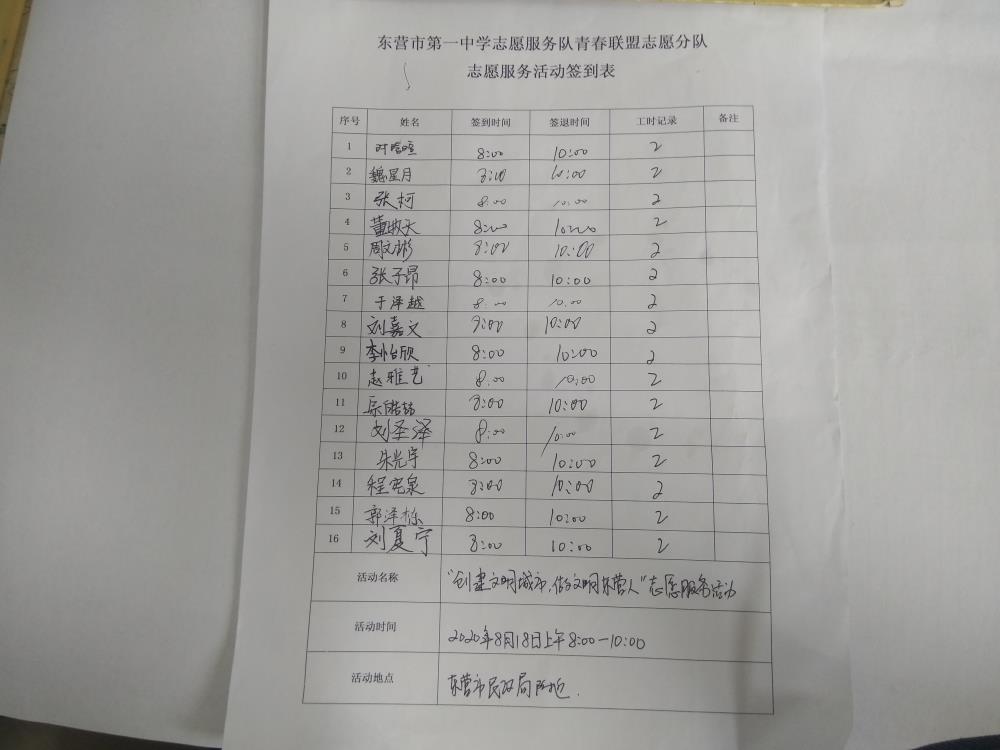 东营市第一中学志愿服务队青春联盟志愿分队
志愿服务活动签到表
序号 姓名 签到时间 签退时间 工时记录 备注
1 8:00 10:00 2
2 魏星月 8:00 10:00 2
3 张柯 8:00 10:00 2
4 董牧天 8:00 10:00 2
5 周文彬 8:00 10:00 2
6 张子昂 8:00 10:00 2
7 于泽越 8:00 10:00 2
8 刘嘉文 8:00 10:00 2
9 李怡欣 8:00 10:00 2
10 赵雅艺 8:00 10:00 2
11 8:00 10:00 2
12 刘圣泽 8:00 10:00 2
13 朱光宇 8:00 10:00 2
14 程 泉 8:00 10:00 2
15 郭泽栋 8:00 10:00 2
16 刘夏宁 8:00 10:00 2
活动名称 “创建文明城市,做文明东营人”志愿服务活动
活动时间 2020年8月18日上午8:00-10:00
活动地点 东营市民政局